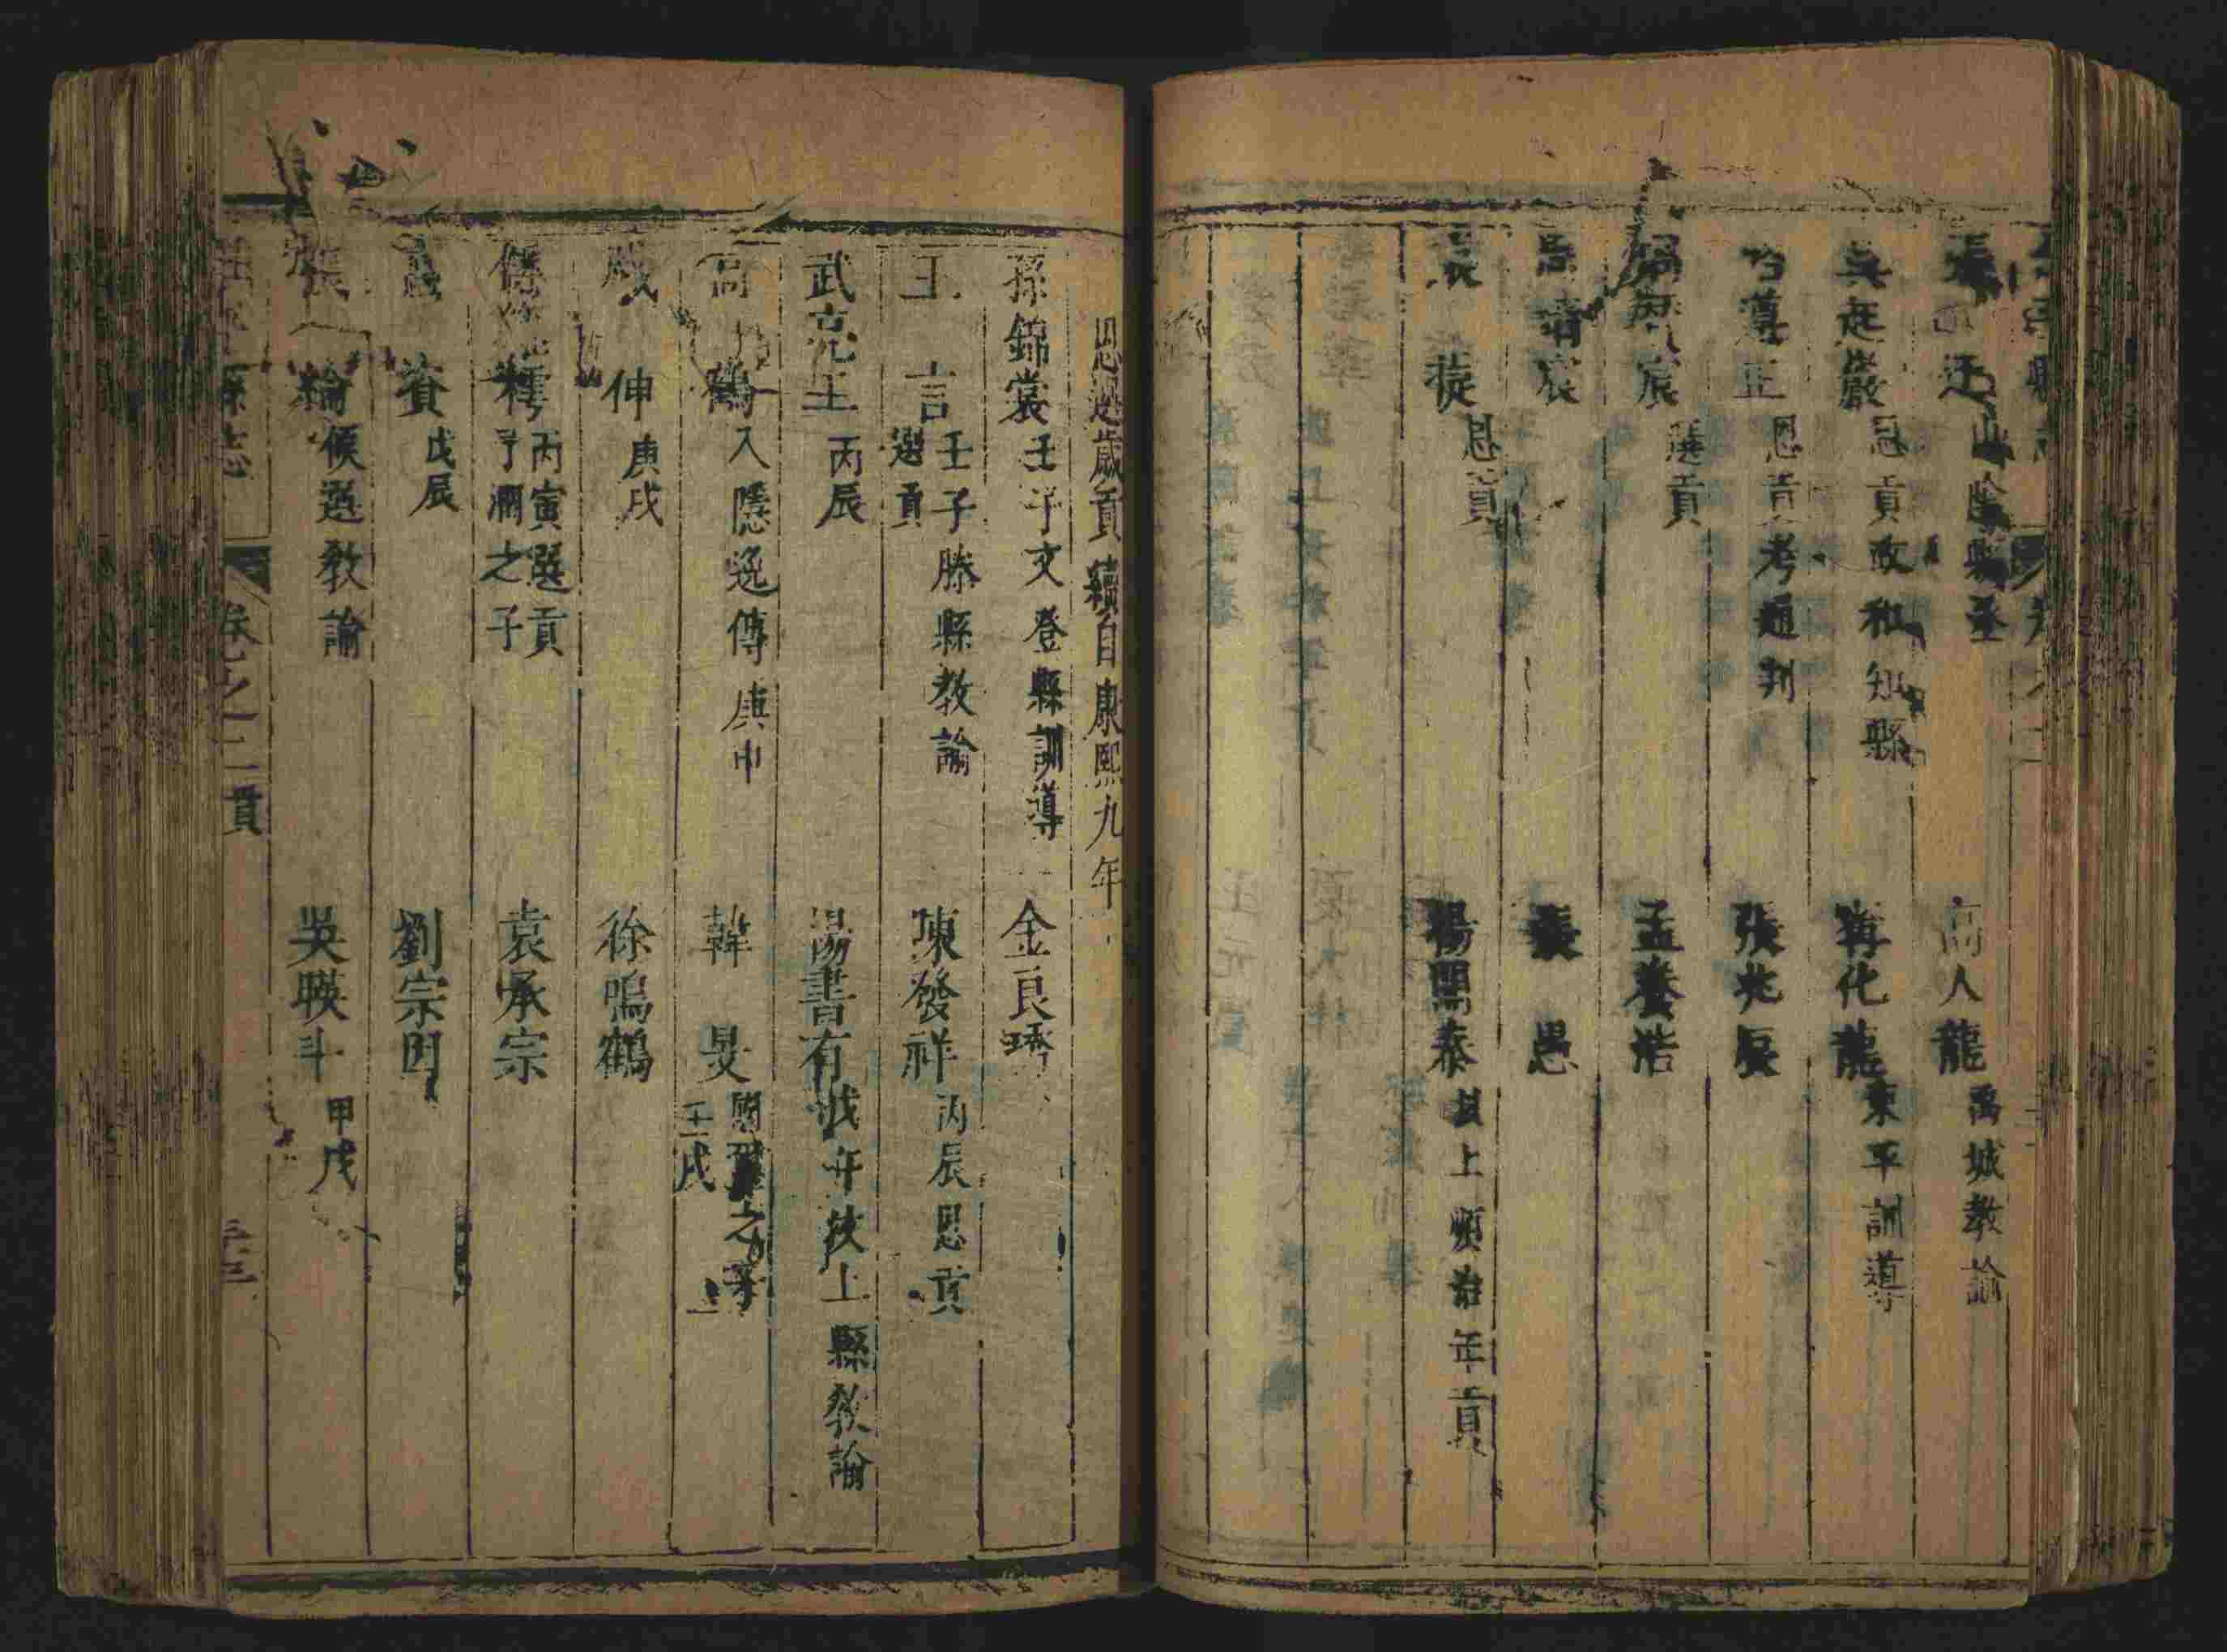 張 迁 山陰縣丞 高人龍 禹城教諭
吳起巖 恩貢政和知縣 甯化龍 東平訓導
遵正 恩貢考通判 張兆辰
宸 選貢 孟養浩
靖宸 張 愚
恩貢 楊熙泰 以上順治年貢
恩選歲貢 續自康熙九年
孫錦裳 壬子文登縣訓導 金良
王 言 壬子滕縣教諭 選貢 陳發祥 丙辰恩貢
武克王 丙辰 湯書有 戊午 上縣教諭
高 鶴 入隱逸傳 庚申 韓 旻 之 壬戌
戚 伸 庚戌 徐鳴鶴
丙寅選貢 之子 袁承宗
賚 戊辰 劉宗因
張 綸 候選教諭 吳暎斗 甲戌
縣志 卷之二 貢